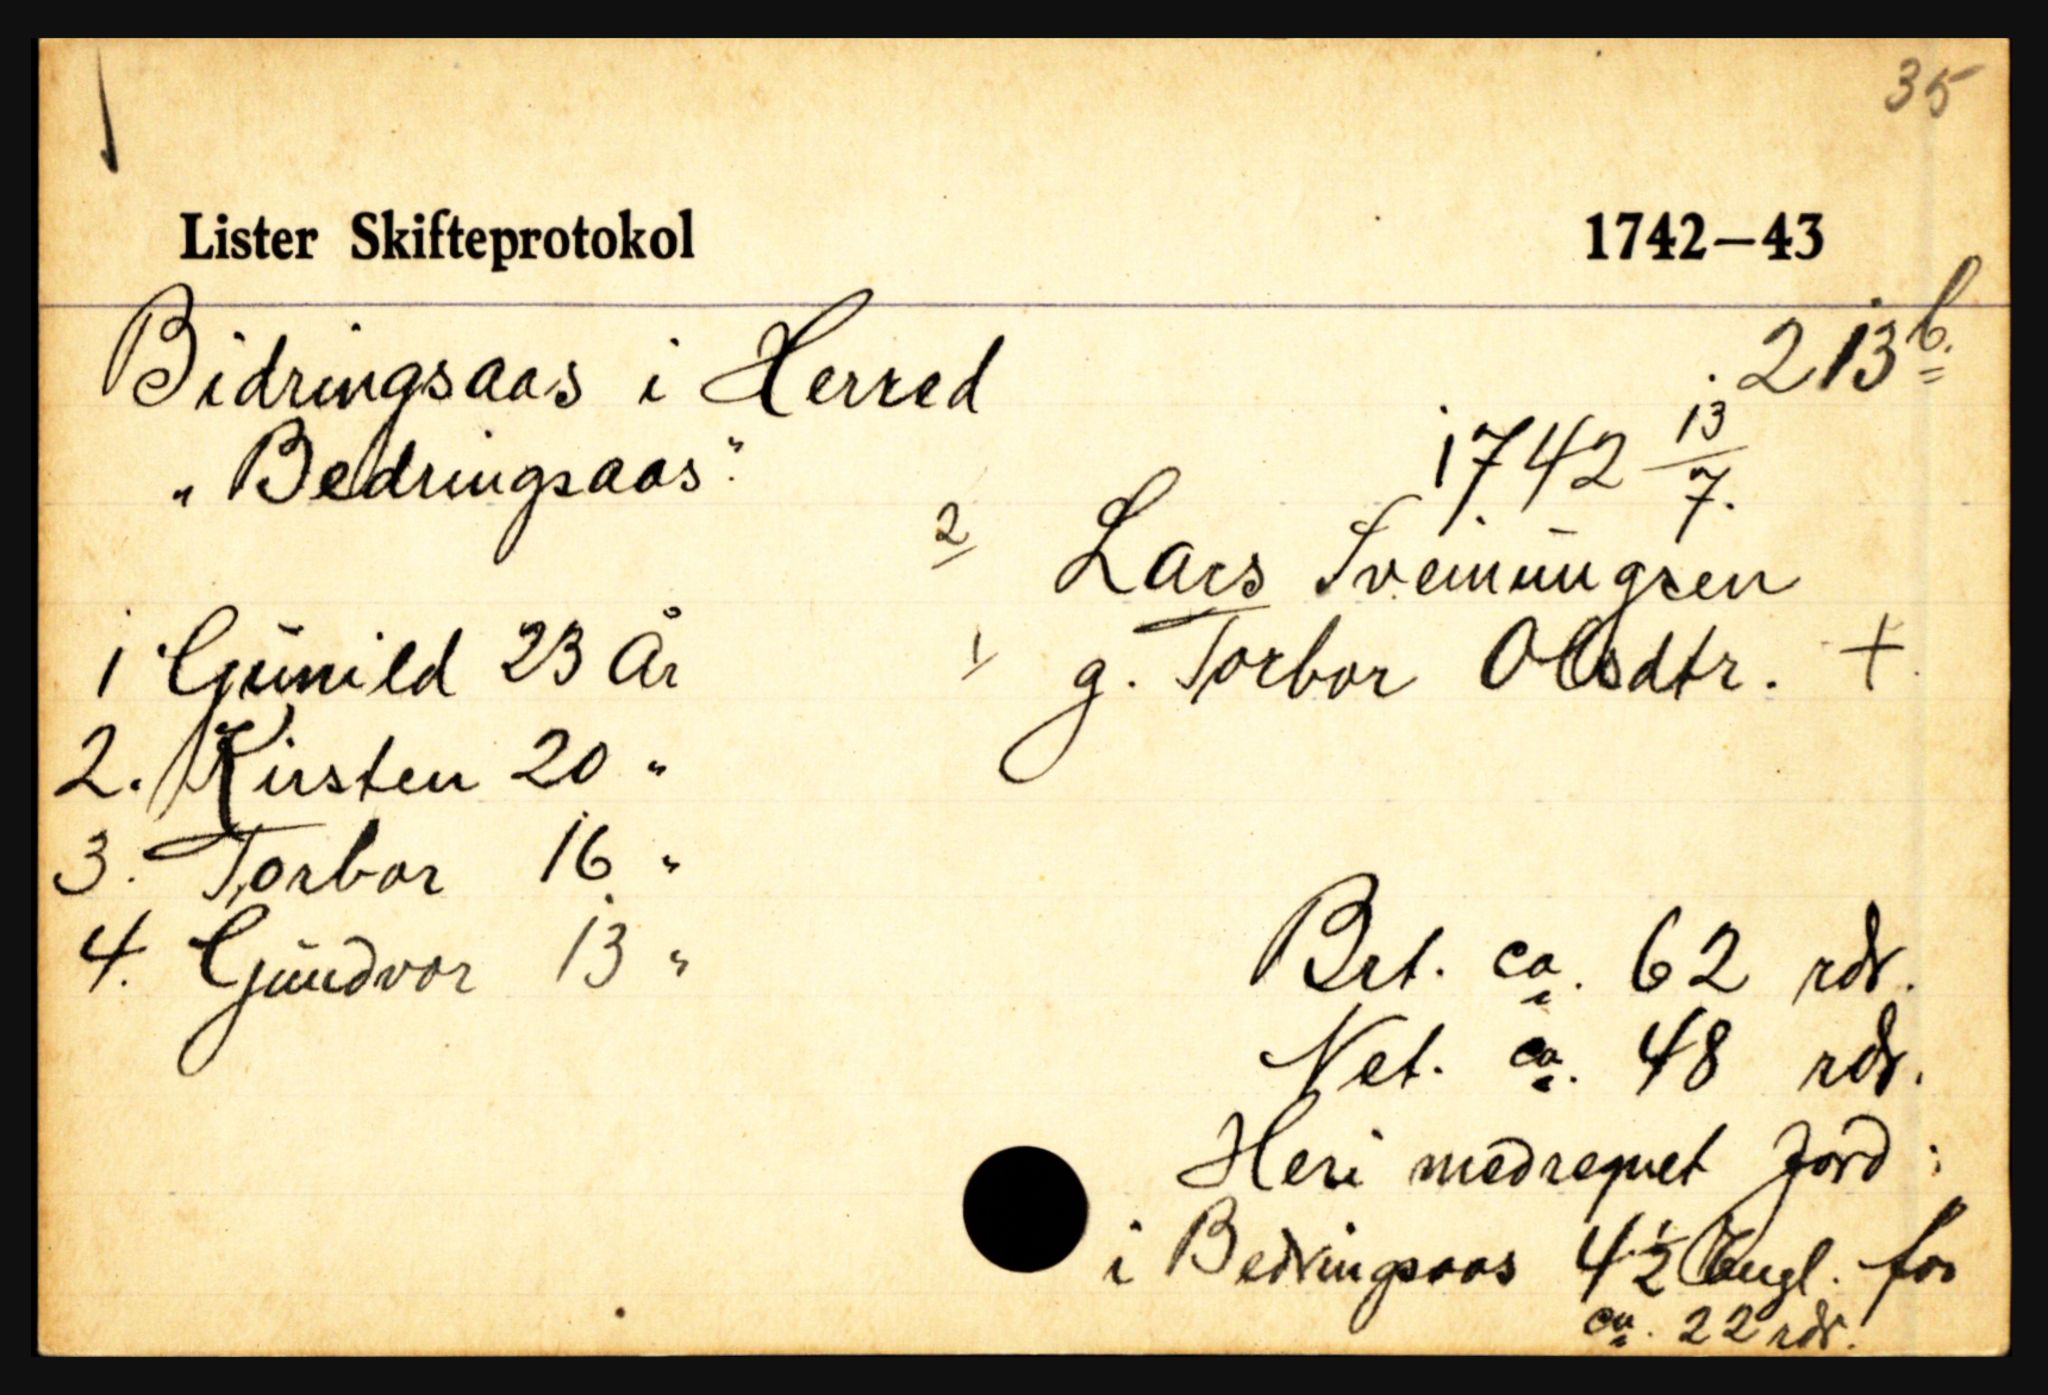 35
Lister Skifteprotokol 1742–43
Bidringsaas i Herred 213 b.
„Bedringsaas" 1742 13/7.
2 Lars Sveinungsen
1 g. Torbor Olsdtr. +
1 Gunild 23 År
2. Kirsten 20 "
3. Torbor 16 "
4. Gundvor 13 "
Brt. ca. 62 rdr.
Net. ca. 48 rdr.
Heri medregnet Jord:
i Bedringsaas 4½ Engl. for
ca. 22 rdr.